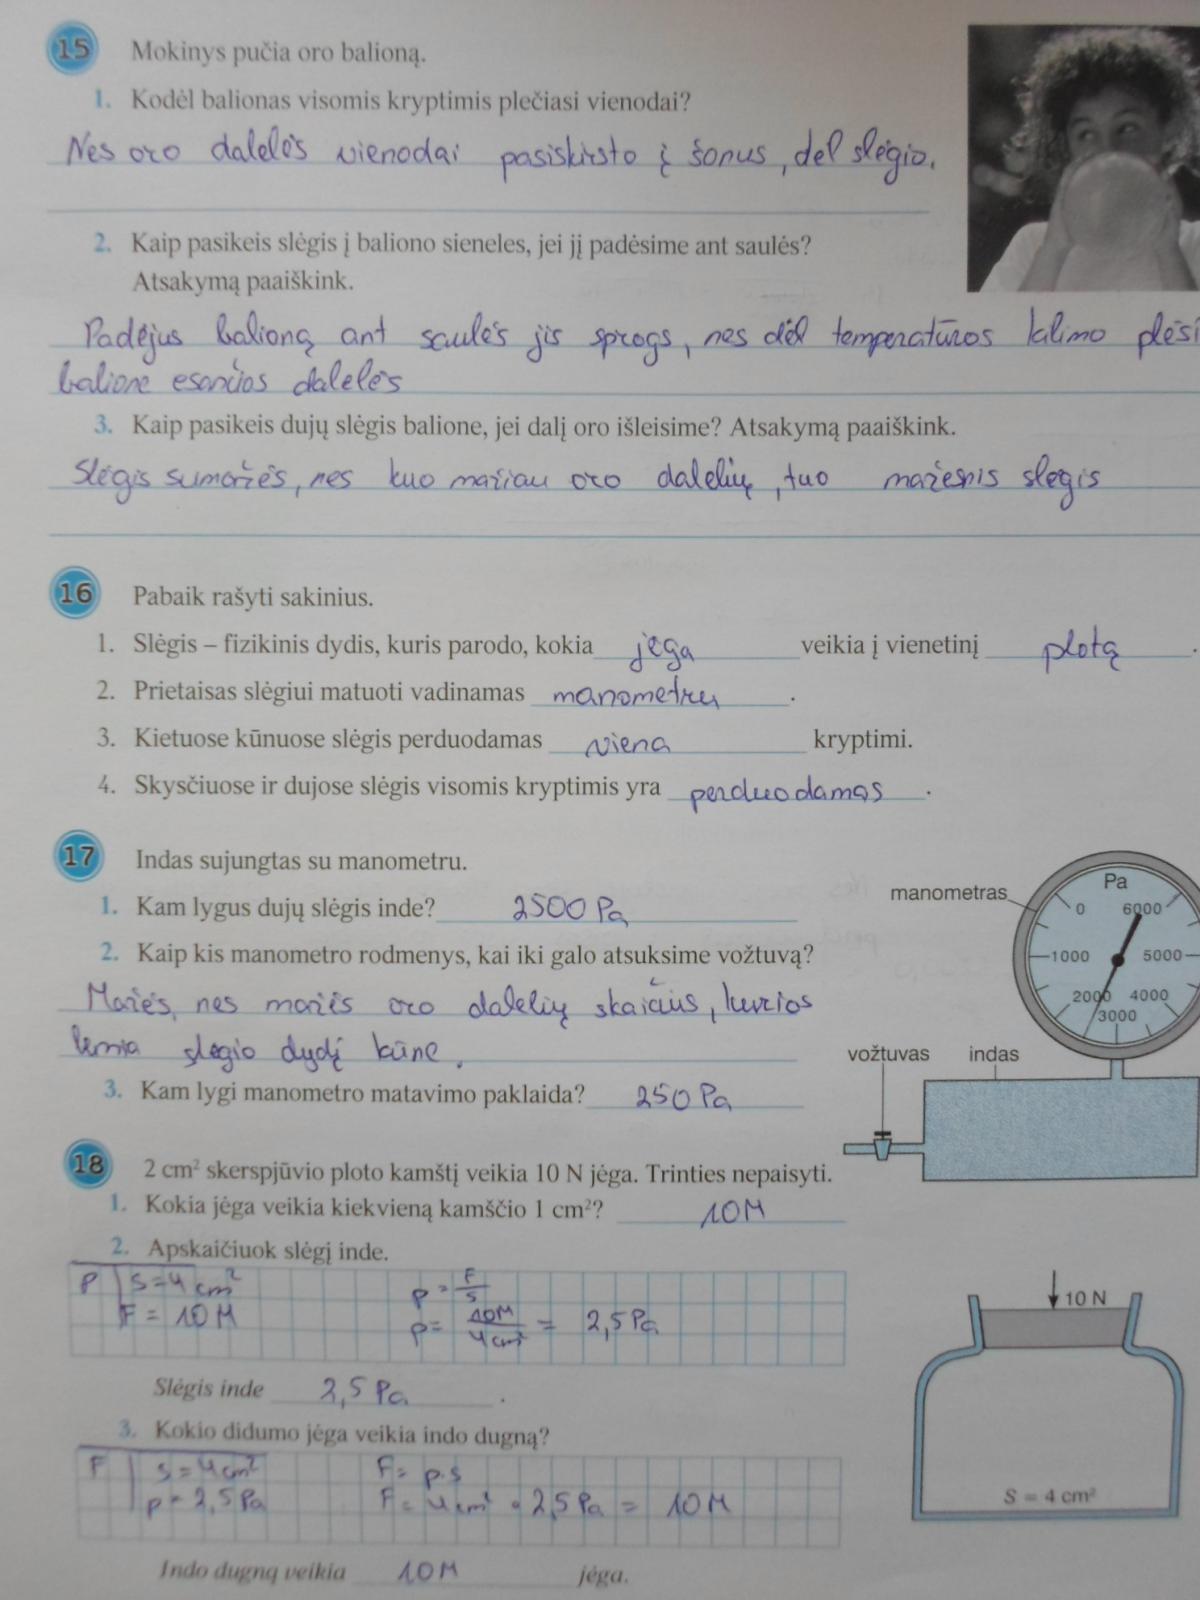 15 Mokinys pučia oro balioną.
1. Kodėl balionas visomis kryptimis plečiasi vienodai?
Nes oro dalelės vienodai pasiskirsto į šonus, dėl slėgio.
2. Kaip pasikeis slėgis į baliono sieneles, jei jį padėsime ant saulės?
Atsakymą paaiškink.
Padėjus balioną ant saulės jis sprogs, nes dėl temperatūros kilimo plėsi
balione esančios dalelės
3. Kaip pasikeis dujų slėgis balione, jei dalį oro išleisime? Atsakymą paaiškink.
Slėgis sumažės, nes kuo mažiau oro dalelių, tuo mažesnis slėgis
16 Pabaik rašyti sakinius.
1. Slėgis – fizikinis dydis, kuris parodo, kokia jėga veikia į vienetinį plotą.
2. Prietaisas slėgiui matuoti vadinamas manometru.
3. Kietuose kūnuose slėgis perduodamas viena kryptimi.
4. Skysčiuose ir dujose slėgis visomis kryptimis yra perduodamas.
17 Indas sujungtas su manometru.
1. Kam lygus dujų slėgis inde? 2500 Pa
2. Kaip kis manometro rodmenys, kai iki galo atsuksime vožtuvą?
Mažės, nes mažės oro dalelių skaičius, kurios
lemia slėgio dydį kūne.
3. Kam lygi manometro matavimo paklaida? 250 Pa
manometras
Pa
0 6000
1000 5000
2000 4000
3000
vožtuvas indas
18 2 cm² skerspjūvio ploto kamštį veikia 10 N jėga. Trinties nepaisyti.
1. Kokia jėga veikia kiekvieną kamščio 1 cm²? 10N
2. Apskaičiuok slėgį inde.
P S = 4 cm² p = F/S
F = 10N p = 10N/4cm² = 2,5 Pa
Slėgis inde 2,5 Pa.
3. Kokio didumo jėga veikia indo dugną?
F S = 4 cm² F = p·s
p = 2,5 Pa F = 4 cm² · 2,5 Pa = 10N
Indo dugną veikia 10N jėga.
10 N
S = 4 cm²